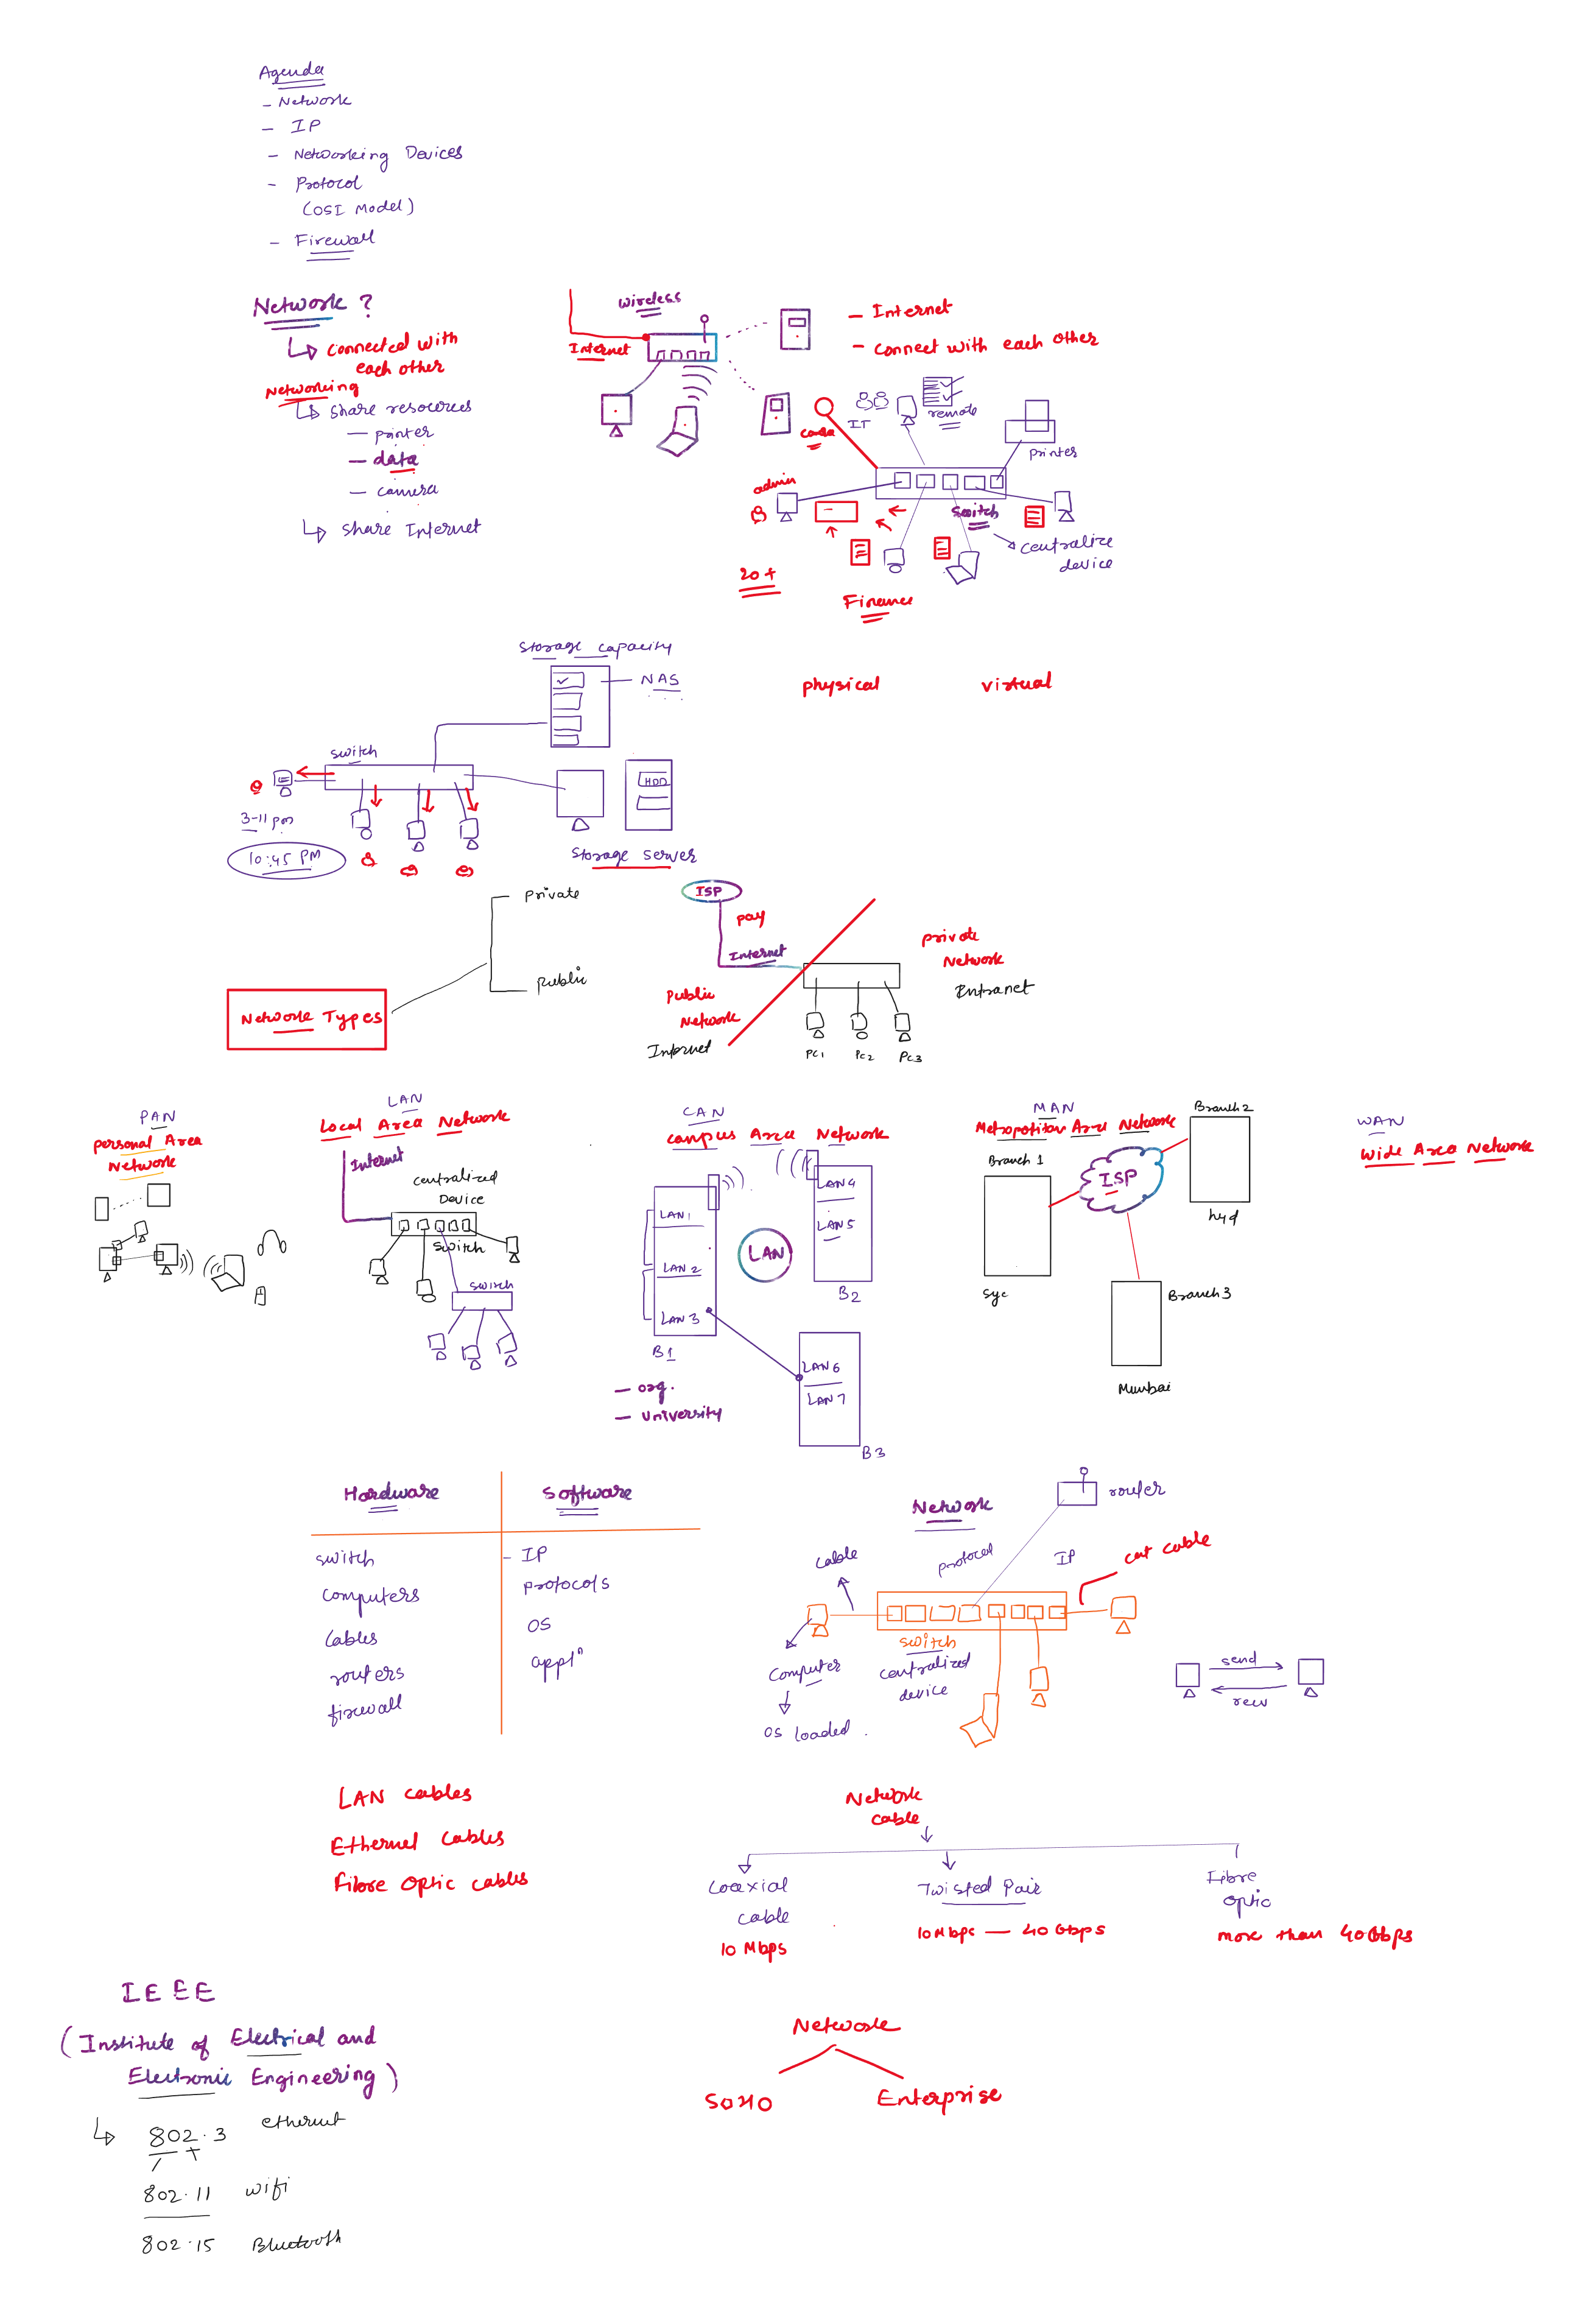 Agenda
- Network
- IP
- Networking Devices
- Protocol
(OSI Model)
- Firewall
Network ?
connected with
each other
Networking
share resources
- printer
- data
- camera
share Internet
wireless
Internet
- Internet
- connect with each other
IT
remote
printer
admin
switch
centralize
device
20 +
Finance
storage capacity
NAS
physical
virtual
switch
3-11 pm
10:45 PM
HDD
storage server
private
public
Network Types
ISP
pay
Internet
private
Network
Intranet
public
Network
Internet
PC1
PC2
PC3
PAN
personal Area
Network
LAN
Local Area Network
Internet
centralized
Device
switch
switch
CAN
campus Area Network
LAN1
LAN 2
LAN 3
B1
LAN4
LAN5
B2
LAN
LAN6
LAN7
B3
- org.
- University
MAN
Metropolitan Area Network
Branch 1
ISP
Branch2
hyd
Branch3
Mumbai
WAN
Wide Area Network
Hardware
Software
switch
- IP
computers
protocols
cables
OS
routers
appln
firewall
Network
router
cable
protocol
IP
cat cable
switch
centralized
device
computer
OS loaded.
send
LAN cables
Ethernet cables
Fibre Optic cables
Network
cable
coaxial
cable
10 Mbps
Twisted Pair
10 Mbps — 40 Gbps
Fibre
optic
more than 40Gbps
IEEE
(Institute of Electrical and
Electronic Engineering)
802.3 ethernet
802.11 wifi
802.15 Bluetooth
Network
SOHO
Enterprise